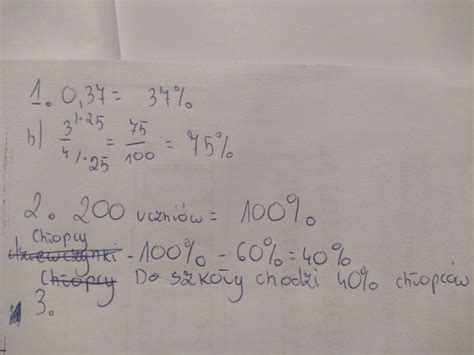 1. 0,37 = 37%
b) 3/4 /·25 /·25 = 75/100 = 75%
2. 200 uczniów = 100%
Chłopcy
dziewczynki - 100% - 60% = 40%
Chłopcy Do szkoły chodzi 40% chłopców
3.